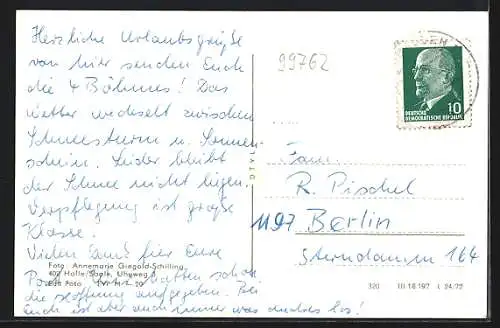 Herzliche Urlaubsgrüße
von hier senden Euch
die 4 Böhmes! Das
Wetter wechselt zwischen
Schneesturm u. Sonnen-
schein. Leider bleibt
der Schnee nicht liegen.
Verpflegung ist große
Klasse.
Vielen Dank für Eure
Wir hatten schon
die Hoffnung aufgegeben. Bei
Euch ist aber auch immer was
los!
Foto: Annemarie Giegold-Schilling
402 Halle/Saale, Uhuweg 8
99762
DEUTSCHE
DEMOKRATISCHE REPUBLIK
10
Fam.
R. Pischel
1197 Berlin
Sterndamm 164
320 10 18 197 I 24/72